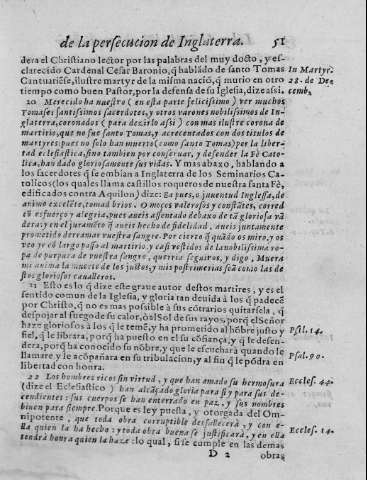 de la persecucion de Inglaterra. 51
dera el Christiano lector por las palabras del muy docto, y es-
clarecido Cardenal Cesar Baronio, q̃ hablãdo de santo Tomas
Cantuariẽse, ilustre martyr de la misma naciõ, q̃ murio en otro
tiempo como buen Pastor, por la defensa de su Iglesia, dize assi.
In Martyr.
28. de De-
cemb.
20 Merecido ha nuestro (en esta parte felicissimo) ver muchos
Tomases santissimos sacerdotes, y otros varones nobilissimos de In-
glaterra, coronados (para dezirlo assi) con mas ilustre corona de
martirio, que no fue santo Tomas, y acrecentados con dos titulos de
martyres: pues no solo han muerto (como santo Tomas) por la liber-
tad eclesiastica, sino tambien por conseruar, y defender la Fè Cato-
lica, han dado gloriosamente sus vidas. Y mas abaxo, hablando a
los sacerdotes q̃ se embian a Inglaterra de los Seminarios Ca-
tolicos (los quales llama castillos roqueros de nuestra santa Fè,
edificados contra Aquilon) dize: Ea pues, o juuentud Inglesa, de
animo excelẽte, tomad brios. O moços valerosos y constãtes, corred
cõ esfuerço y alegria, pues aueis assentado debaxo de tã gloriosa vã
dera; y en el juramẽto q̃ aueis hecho de fidelidad, aueis juntamente
prometido derramar vuestra sangre. Por cierto q̃ quãdo os miro, y os
veo yr cõ largo passo al martirio, y casi vestidos de la nobilissima ro-
pa de purpura de vuestra sangre, querria seguiros, y digo, Muera
mi anima la muerte de los justos, y mis postrimerias seã como las de
stos gloriosos caualleros.
21 Esto es lo q̃ dize este graue autor destos martires, y es el
sentido comun de la Iglesia, y gloria tan deuida à los q̃ padecẽ
por Christo, q̃ no es mas possible à sus cõtrarios quitarsela, q̃
despojar al fuego de su calor, ò al Sol de sus rayos, porq̃ el Señor
haze gloriosos à los q̃ le temẽ, y ha prometido al hõbre justo y
fiel, q̃ le librara, porq̃ ha puesto en el su cõfiança, y q̃ le defen-
dera, porq̃ ha conocido su nõbre, y que le escuchará quando le
llamare, y le acõpañara en su tribulacion, y al fin q̃ le põdra en
libertad con honra.
Psal. 14.
Psal. 90.
22 Los hombres ricos sin virtud, y que han amado su hermosura
(dize el Eclesiastico) han alcãçado gloria para si y para sus de-
cendientes: sus cuerpos se han enterrado en paz, y sus nombres
biuen para siempre. Porque es ley puesta, y otorgada del Om-
nipotente, que toda obra corruptible desfallecerà, y con e-
lla quien la ha hecho: y toda obra buena se justificarà, y en ella
tendrà honra quien la haze: lo qual, si se cumple en las demas
Eccles. 44.
Eccles. 14.
D 2 obras